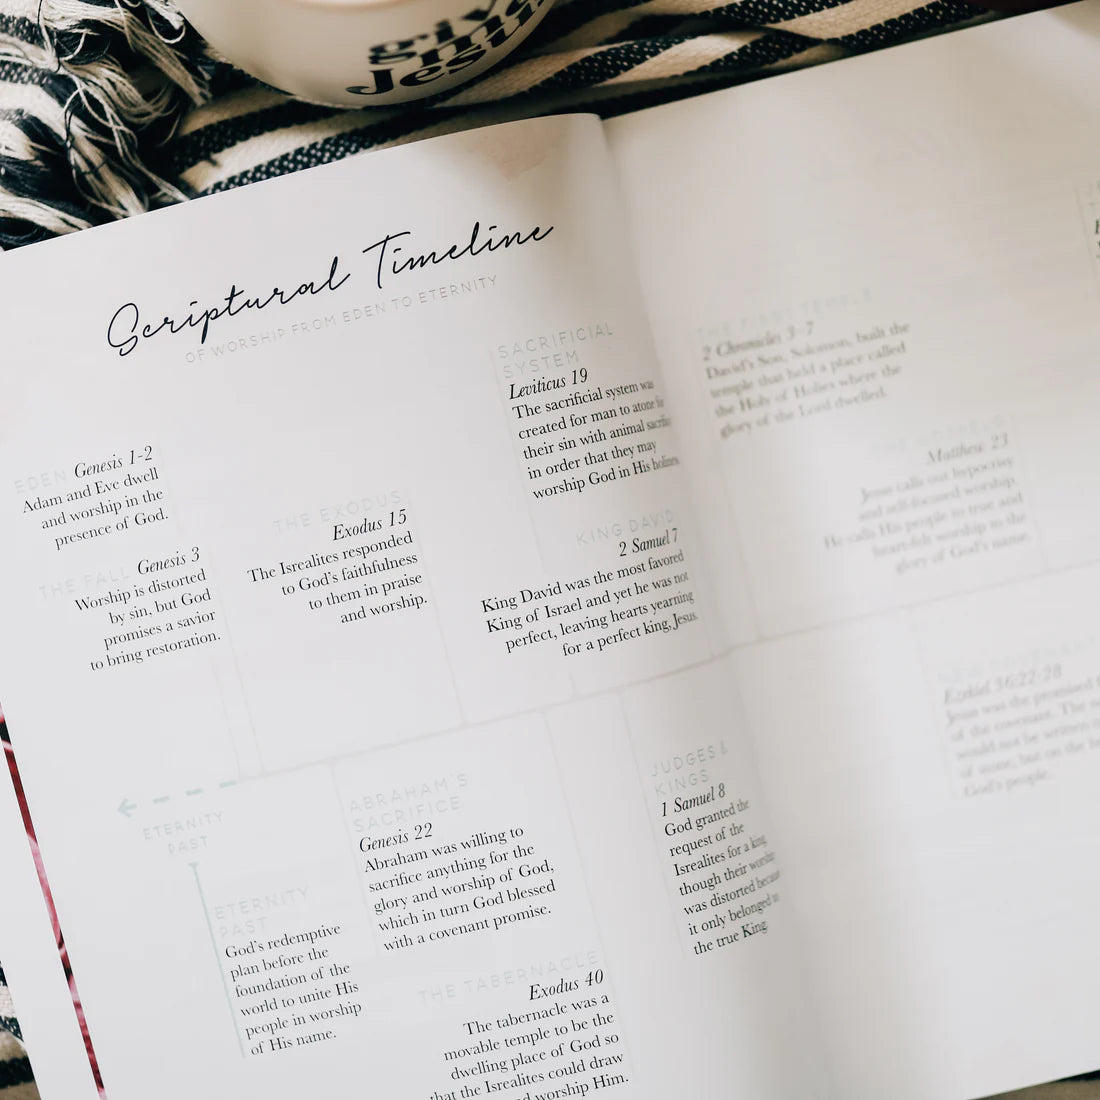 give
me
Jesus
Scriptural Timeline
OF WORSHIP FROM EDEN TO ETERNITY
EDEN Genesis 1-2
Adam and Eve dwell
and worship in the
presence of God.
THE FALL Genesis 3
Worship is distorted
by sin, but God
promises a savior
to bring restoration.
THE EXODUS
Exodus 15
The Isrealites responded
to God's faithfulness
to them in praise
and worship.
SACRIFICIAL
SYSTEM
Leviticus 19
The sacrificial system was
created for man to atone for
their sin with animal sacrifice
in order that they may
worship God in His holiness.
KING DAVID
2 Samuel 7
King David was the most favored
King of Israel and yet he was not
perfect, leaving hearts yearning
for a perfect king, Jesus.
ETERNITY
PAST
ETERNITY
PAST
God's redemptive
plan before the
foundation of the
world to unite His
people in worship
of His name.
ABRAHAM'S
SACRIFICE
Genesis 22
Abraham was willing to
sacrifice anything for the
glory and worship of God,
which in turn God blessed
with a covenant promise.
THE TABERNACLE
Exodus 40
The tabernacle was a
movable temple to be the
dwelling place of God so
that the Isrealites could draw
worship Him.
JUDGES &
KINGS
1 Samuel 8
God granted the
request of the
Isrealites for a king,
though their worship
was distorted because
it only belonged to
the true King.
THE FIRST TEMPLE
2 Chronicles 3-7
David's Son, Solomon, built the
temple that held a place called
the Holy of Holies where the
glory of the Lord dwelled.
Matthew 23
Jesus calls out hypocrisy
and self-focused worship.
He calls His people to true and
heart-felt worship to the
glory of God's name.
NEW COVENANT
Ezekiel 36:22-28
Jesus was the promised
of the covenant. The
would not be written
of stone, but on the
God's people.